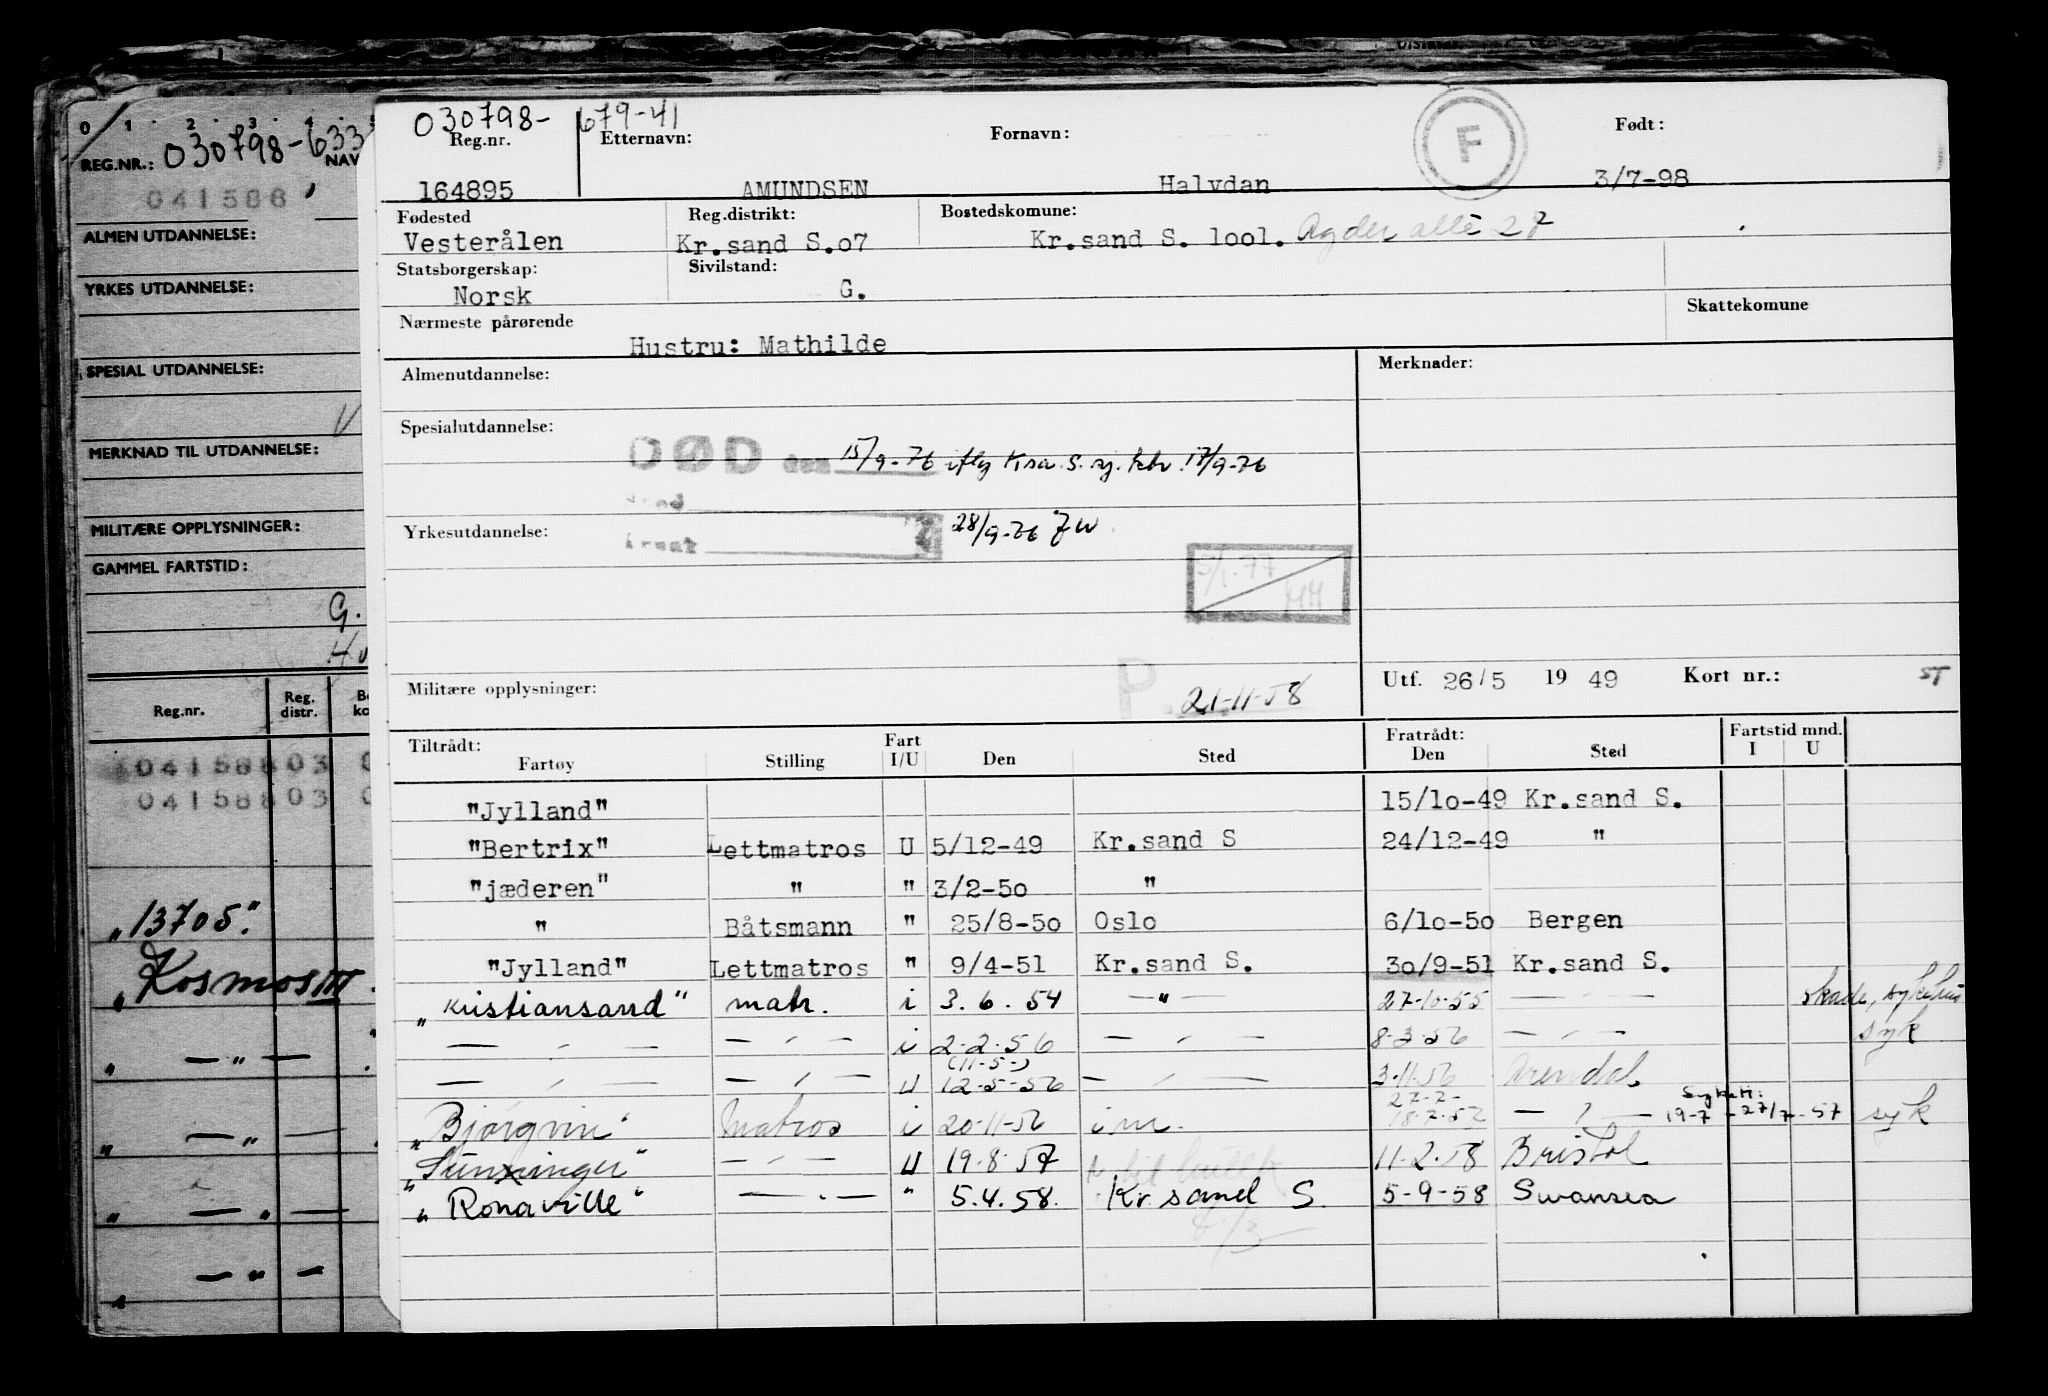 0 1 2 3 4 5
REG.NR.: 030798-633 NAV
041588
ALMEN UTDANNELSE:
YRKES UTDANNELSE:
SPESIAL UTDANNELSE:
V
MERKNAD TIL UTDANNELSE:
MILITÆRE OPPLYSNINGER:
GAMMEL FARTSTID:
G.
Hu
Reg.nr. Reg. distr. Bo ko
041588 03 0
041588 03 0
"13705."
"Kosmos III
" — " —
" — " —
" — " —
— " —
030798- 679-41
Reg.nr. Etternavn: Fornavn: F Født:
164895 AMUNDSEN Halvdan 3/7-98
Fødested Reg.distrikt: Bostedskomune:
Vesterålen Kr.sand S.o7 Kr.sand S. lool. Agder alle 27
Statsborgerskap: Sivilstand:
Norsk G.
Nærmeste pårørende Skattekomune
Hustru: Mathilde
Almenutdannelse: Merknader:
Spesialutdannelse:
DØD den 15/9-76 iflg Krsa. S. sj. ktr. 17/9-76
Yrkesutdannelse: 28/9-76
5/1-77
HH
Militære opplysninger: P 21-11-58 Utf. 26/5 19 49 Kort nr.: ST
Tiltrådt: Fart Fratrådt: Fartstid mnd.
Fartøy Stilling I/U Den Sted Den Sted I U
"Jylland" 15/lo-49 Kr.sand S.
"Bertrix" Lettmatros U 5/12-49 Kr.sand S 24/12-49 "
"jæderen" " " 3/2-5o "
" Båtsmann " 25/8-5o Oslo 6/lo-5o Bergen
"Jylland" Lettmatros " 9/4-51 Kr.sand S. 3o/9-51 Kr.sand S.
"Kristiansand" matr. i 3.6.54 — " — 27-10-55 — " — skade, sykehus
— " — — " — i 2-2-56 — " — 8-3-56 — " — syk
(11-5-)
— " — — " — U 12-5-56 — " — 3-11-56 Arendal
27-7- Sykeh:
"Bjørgvin" Matros i 20-11-56 i m. 18-7-57 — " — 19-7-27/7-57 syk
"Sunxinger" — " — U 19.8.57 11.2.58 Bristol
"Ronaville" — " — " 5.4.58. Kr.sand S. 5-9-58 Swansea